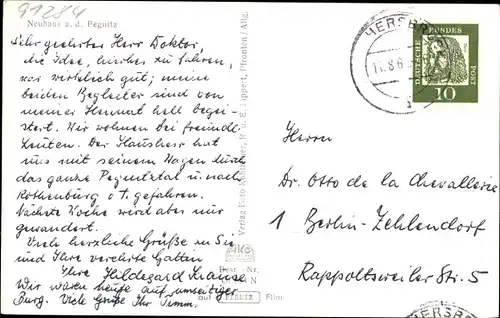 91284
Neuhaus a. d. Pegnitz
Sehr geehrter Herr Doktor,
die Idee, hierher zu fahren,
war wirklich gut; meine
beiden Begleiter sind von
meiner Heimat hell begei-
stert. Wir wohnen bei freundl.
Leuten. Der Hausherr hat
uns mit seinem Wagen durch
das ganze Pegnitztal u. nach
Rothenburg o T. gefahren.
Nächste Woche wird aber nur
gewandert.
Viele herzliche Grüße zu Sie
und Ihre verehrte Gattin
Ihre Hildegard Krause
Wir waren heute auf umseitiger
Burg. Viele Grüße Ihr Timm.
Verlag Foto
R. u. E. Ruppert, Pfronten / Allg.
Best.-Nr.
auf PERUTZ Film
HERSBR
11.8.6
DEUTSCHE BUNDESPOST
10
Herrn
Dr. Otto de la Chevallerie
1 Berlin-Zehlendorf
Rappoltsweiler Str. 5
HERSBR